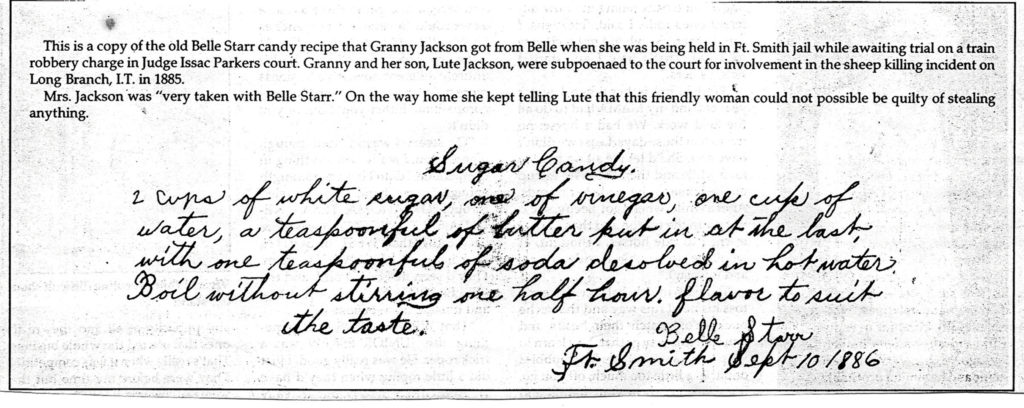 This is a copy of the old Belle Starr candy recipe that Granny Jackson got from Belle when she was being held in Ft. Smith jail while awaiting trial on a train
robbery charge in Judge Issac Parkers court. Granny and her son, Lute Jackson, were subpoenaed to the court for involvement in the sheep killing incident on
Long Branch, I.T. in 1885.
Mrs. Jackson was "very taken with Belle Starr." On the way home she kept telling Lute that this friendly woman could not possible be quilty of stealing
anything.
Sugar Candy.
2 cups of white sugar, one of vinegar, one cup of
water, a teaspoonful of butter put in at the last,
with one teaspoonful of soda desolved in hot water.
Boil without stirring one half hour. flavor to suit
the taste.
Belle Starr
Ft. Smith Sept 10 1886